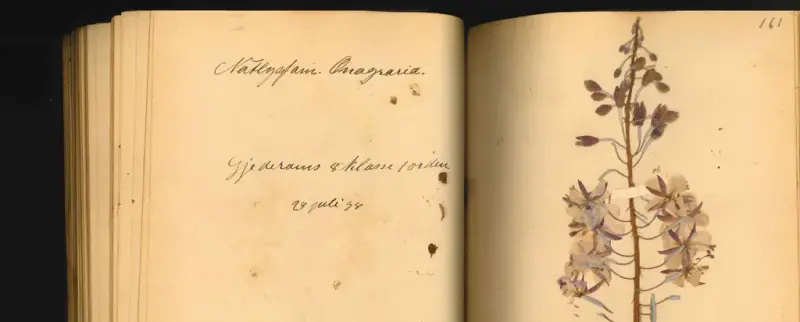 Natlysfam. Onagraria.
Gjederams 8 klasse 1 orden
28 juli 98
161